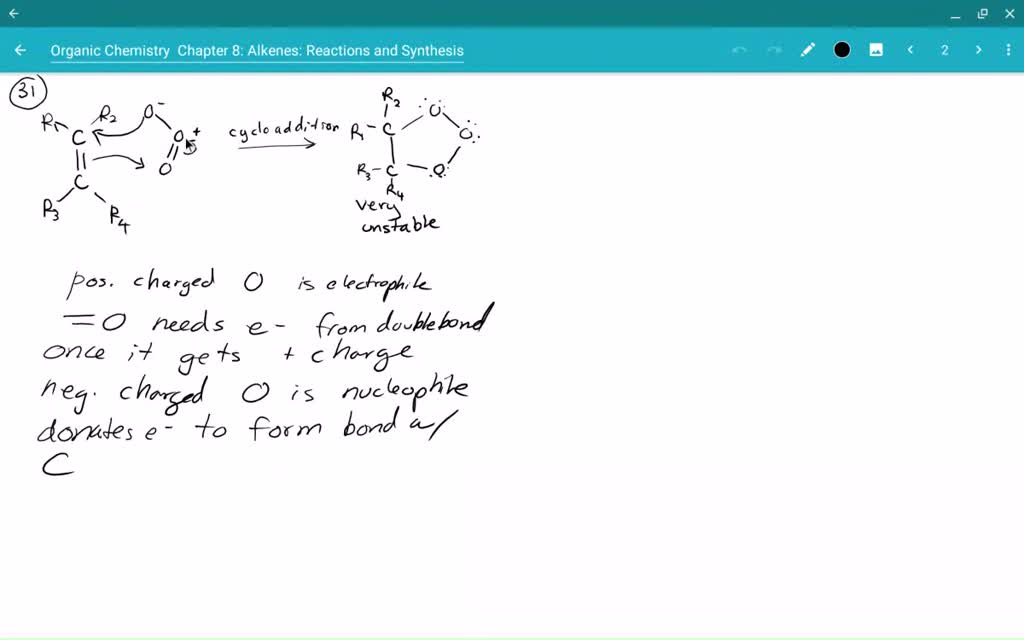 Organic Chemistry Chapter 8: Alkenes: Reactions and Synthesis
2
31
R1 R2 O-
C O+
O
C
R3 R4
cycloaddition
R2
R1-C O
O
R3-C-O
R4
very
unstable
pos. charged O is electrophile
=O needs e- from double bond
once it gets + charge
neg. charged O is nucleophile
donates e- to form bond w/
C